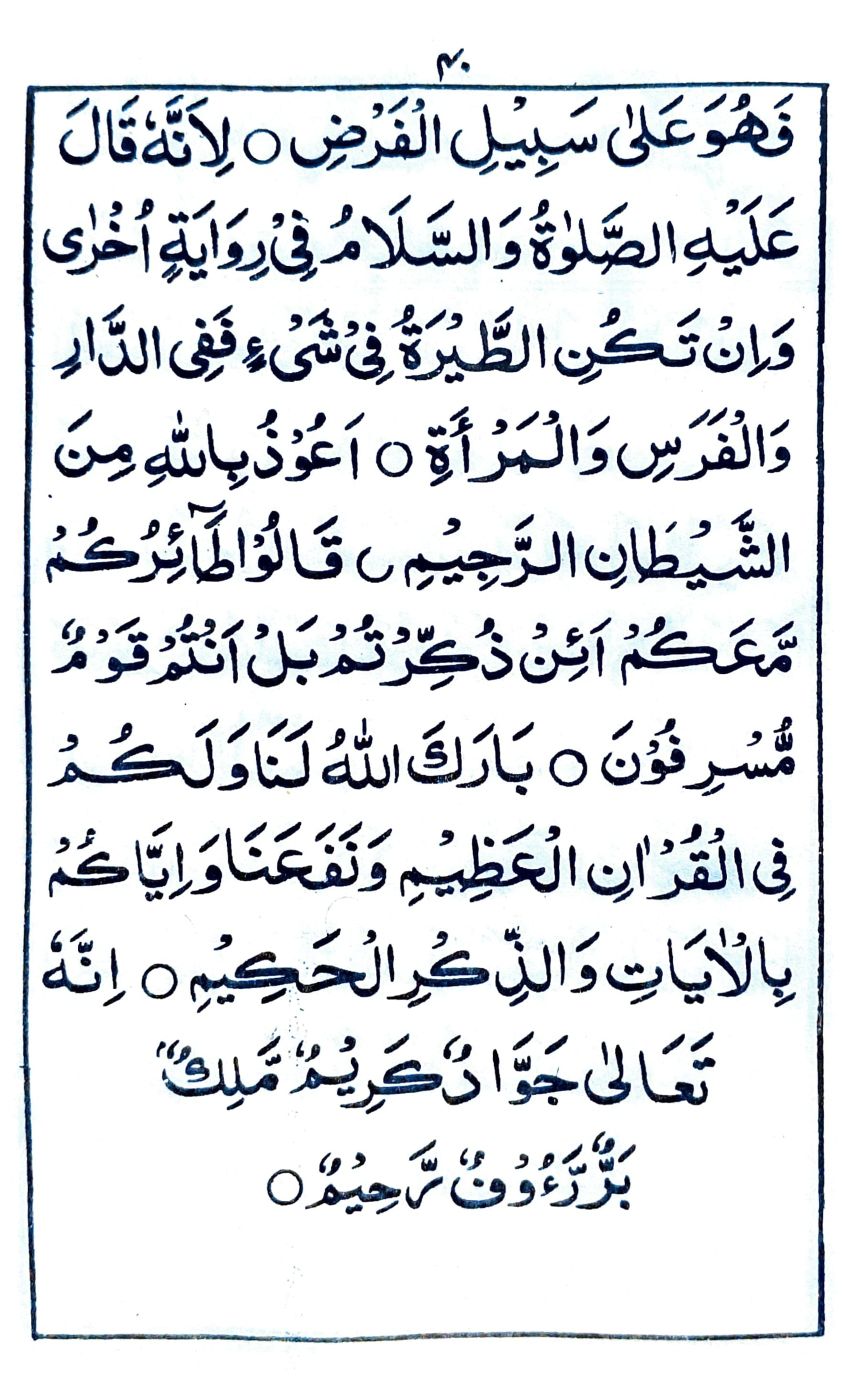 ۴۰
فَهُوَ عَلٰى سَبِيْلِ الْفَرْضِ ○ لِاَنَّهٗ قَالَ
عَلَيْهِ الصَّلٰوةُ وَالسَّلَامُ فِىْ رِوَايَةٍ اُخْرٰى
وَاِنْ تَكُنِ الطَّيْرَةُ فِىْ شَىْءٍ فَفِى الدَّارِ
وَالْفَرَسِ وَالْمَرْأَةِ ○ اَعُوْذُ بِاللّٰهِ مِنَ
الشَّيْطَانِ الرَّجِيْمِ ر قَالُوْا طَآئِرُكُمْ
مَّعَكُمْ اَئِنْ ذُكِّرْتُمْ بَلْ اَنْتُمْ قَوْمٌ
مُّسْرِفُوْنَ ○ بَارَكَ اللّٰهُ لَنَا وَلَكُمْ
فِى الْقُرْاٰنِ الْعَظِيْمِ وَنَفَعَنَا وَاِيَّاكُمْ
بِالْاٰيَاتِ وَالذِّكْرِ الْحَكِيْمِ ○ اِنَّهٗ
تَعَالٰى جَوَّادٌ كَرِيْمٌ مَّلِكٌ
بَرٌّ رَّءُوْفٌ رَّحِيْمٌ ○